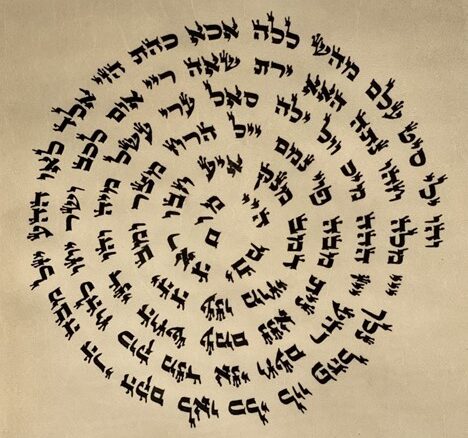 והו ילי סיט עלם מהש ללה אכא כהת הזי אלד לאו ההע יזל מבה הרי הקם לאו כלי לוו פהל נלך ייי מלה חהו נתה האא ירת שאה ריי אום לכב ושר יחו להח כוק מנד אני חעם רהע ייז ההה מיכ וול ילה סאל ערי עשל מיה והו דני החש עמם ננא נית מבה פוי נמם ייל הרח מצר ומב יהה ענו מחי דמב מנק איע חבו ראה יבם היי מום